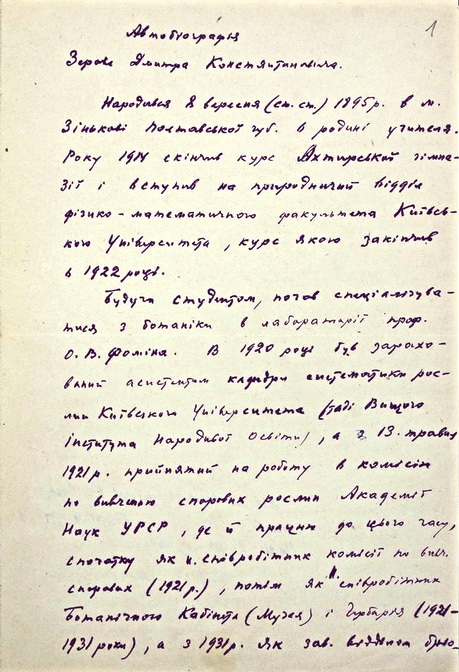 1
Автобіографія
Зерова Дмитра Константиновича.
Народився 8 вересня (ст. ст.) 1895 р. в м.
Зінькові Полтавської губ. в родині учителя.
Року 1914 скінчив курс Ахтирської гімна-
зії і вступив на природничий відділ
фізико-математичного факультета Київсь-
кого Університета, курс якого закінчив
в 1922 році.
Будучи студентом, почав спеціалізува-
тися з ботаніки в лабораторії проф.
О. В. Фоміна. В 1920 році був зарахо-
ваний асистентом кафедри систематики рос-
лин Київського Університета (тоді Вищого
Інститута Народної Освіти), а з 13. травня
1921 р. прийнятий на роботу в комісію
по вивченню спорових рослин Академії
Наук УРСР, де й працюю до цього часу,
спочатку як н. співробітник комісії по вивч.
спорових (1921 р.), потім як н. співробітник
Ботанічного Кабінета (Музея) і Гербарія (1921-
1931 роки), а з 1931 р. як зав. відділом